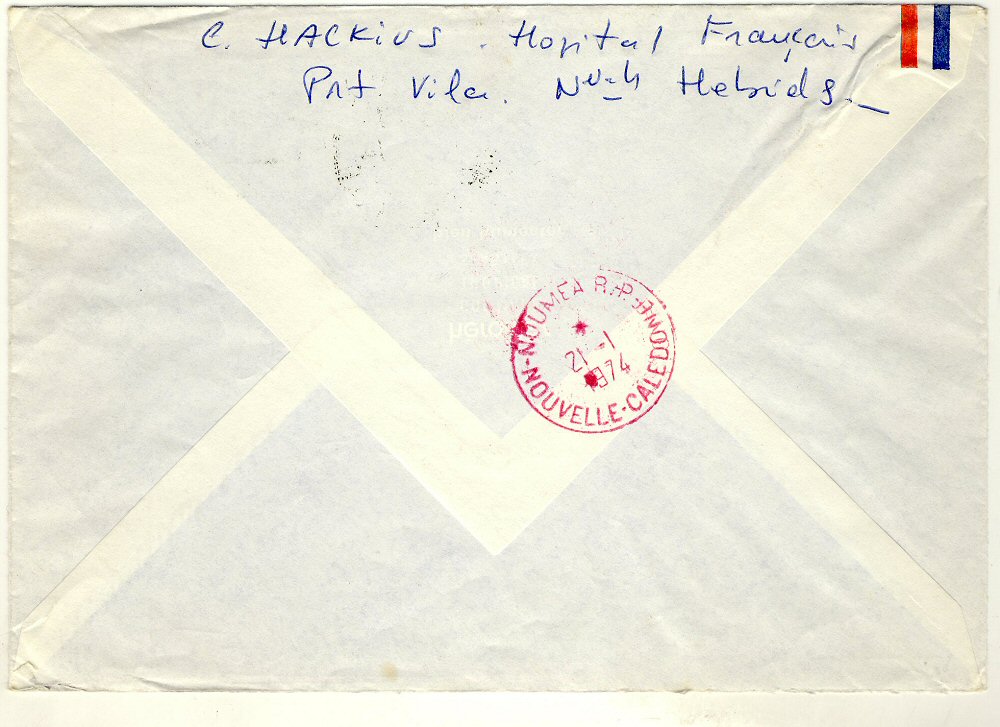 C. HACKIUS. Hopital Français
Prt. Vila. Nvelles Hebrids.
NOUMEA R.P.
21 -1
1974
NOUVELLE-CALEDONIE